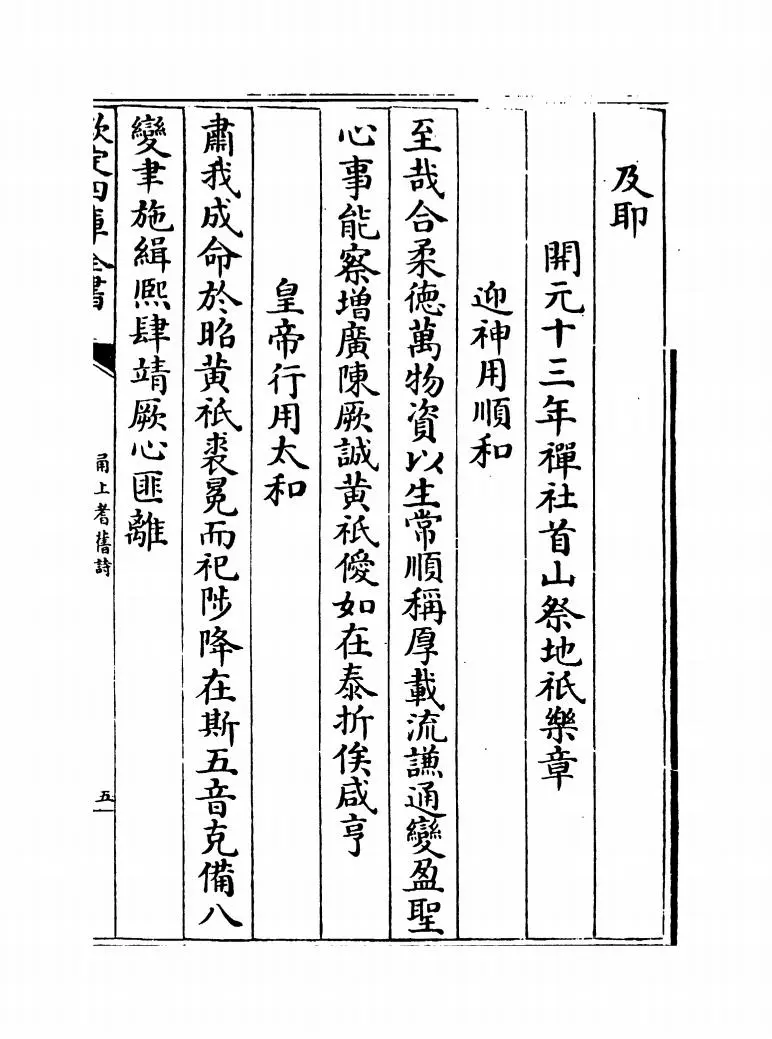 及耶
開元十三年禪社首山祭地祇樂章
迎神用順和
至哉合柔德萬物資以生常順稱厚載流謙通變盈聖
心事能察增廣陳厥誠黄祇僾如在泰折俟咸亨
皇帝行用太和
肅我成命於昭黄祇裘冕而祀陟降在斯五音克備八
變聿施緝熙肆靖厥心匪離
欽定四庫全書
甬上耆舊詩
五